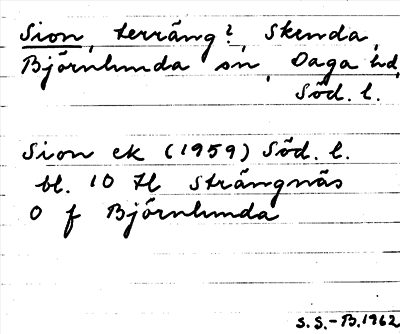 Sion, terräng?, Skenda,
Björnlunda sn, Daga hd,
Söd. l.
Sion ek (1959) Söd. l.
bl. 10 Il Strängnäs
O f Björnlunda
S.S.-B.1962